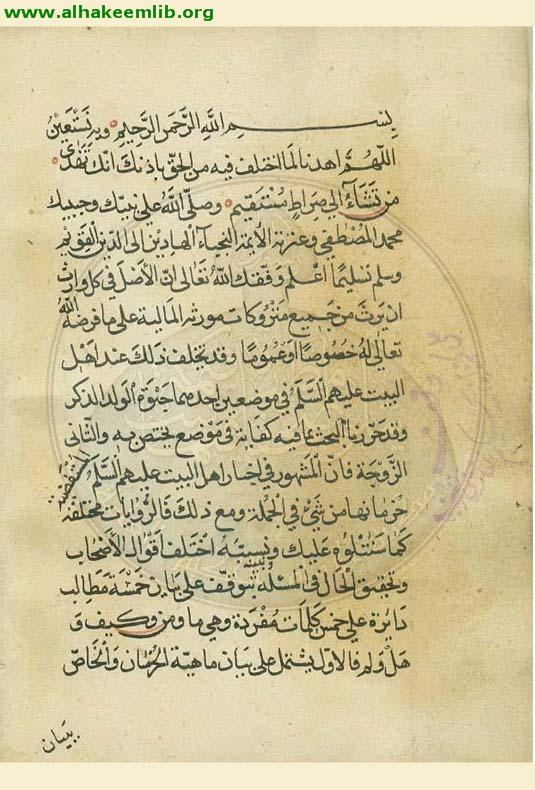 www.alhakeemlib.org
بسم الله الرحمن الرحيم وبه نستعين
اللهم اهدنا لما اختلف فيه من الحق باذنك انك تهدي
من تشاء الى صراط مستقيم وصلى الله على نبيك وحبيبك
محمد المصطفى وعترته الأئمة النجباء الهادين الى الدين القويم
وسلم تسليما اعلم وفقك الله تعالى ان الأصل في كل وارث
ان يرث من جميع متروكات مورثه المالية على ما فرضه الله
تعالى له خصوصا او عموما وقد تخلف ذلك عند اهل
البيت عليهم السلم في موضعين احدهما حبوة الولد الذكر
وقد حررنا البحث بما فيه كفاية في موضع يختص به والثاني
الزوجة فان المشهور في اخبار اهل البيت عليهم السلم
حرمانها من شئ في الجملة ومع ذلك فالروايات مختلفة
كما سنتلوه عليك وبسببه اختلف اقوال الأصحاب
وتحقيق الحال في المسئلة يتوقف على بيان خمسة مطالب
دائرة على خمس كلمات مفردة وهي ما ومن وكيف و
هل ولم فالاول يشتمل على بيان ماهية الحرمان والخاص
بيان